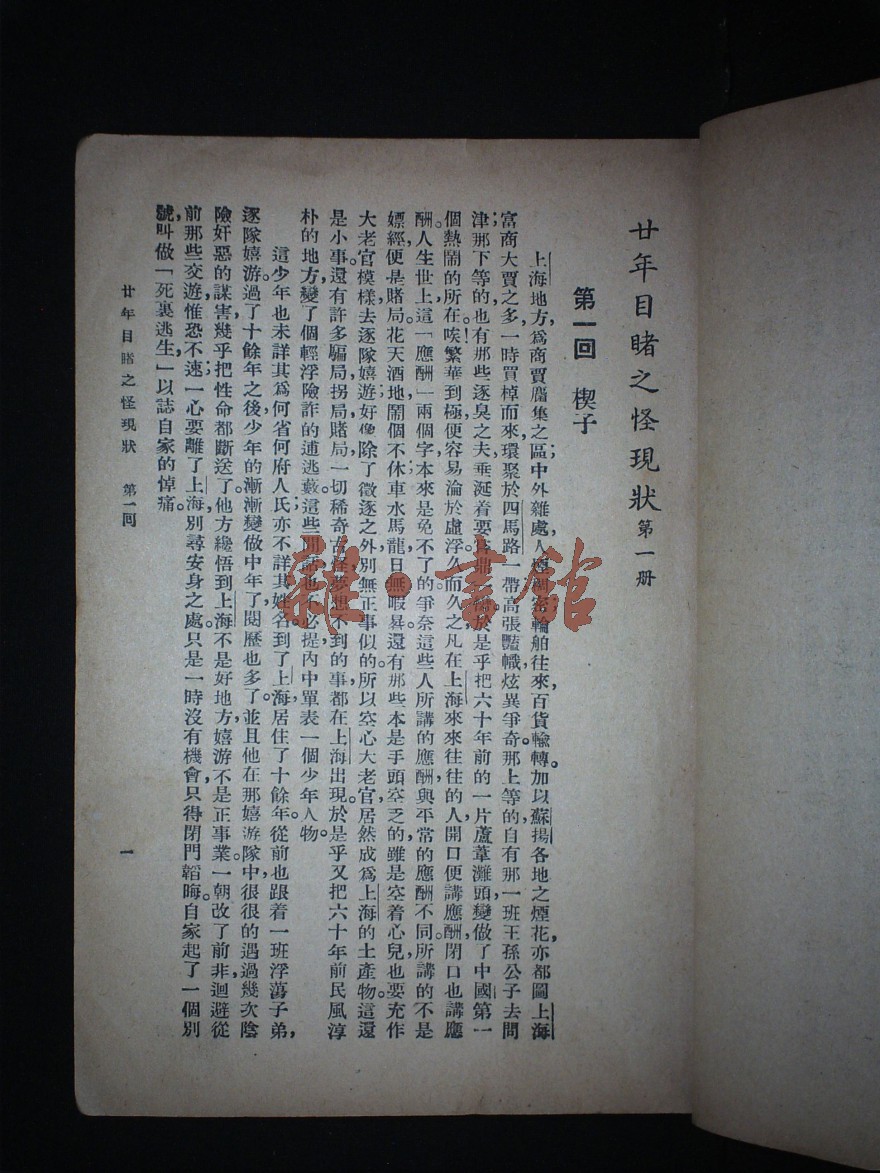 廿年目睹之怪現狀 第一册
第一回 楔子
上海地方，爲商賈麕集之區；中外雜處，人煙稠密，輪舶往來，百貨輸轉。加以蘇揚各地之煙花，亦都圖上海
富商大賈之多，一時買棹而來，環聚於四馬路一帶，高張豔幟，炫異爭奇。那上等的，自有那一班王孫公子去問
津；那下等的，也有那些逐臭之夫，垂涎着要嘗鼎一臠。於是乎把六十年前的一片蘆葦灘頭，變做了中國第一
個熱鬧的所在。唉！繁華到極，便容易淪於虛浮。久而久之，凡在上海來來往往的人，開口便講應酬，閉口也講應
酬。人生世上，這「應酬」兩個字，本來是免不了的；爭奈這些人所講的應酬，與平常的應酬不同。所講的不是
嫖經，便是賭局，花天酒地，鬧個不休，車水馬龍，日無暇晷。還有那些本是手頭空乏的，雖是空着心兒，也要充作
大老官模樣，去逐隊嬉遊，好像除了徵逐之外，別無正事似的。所以空心大老官，居然成爲上海的土產物。這還
是小事。還有許多騙局、拐局、賭局，一切稀奇古怪，夢想不到的事，都在上海出現。於是乎又把六十年前民風淳
朴的地方，變了個輕浮險詐的逋逃藪。這些閒話，也不必提，內中單表一個少年人物。
這少年也未詳其爲何省何府人氏，亦不詳其姓名。到了上海，居住了十餘年。從前也跟着一班浮蕩子弟，
逐隊嬉游。過了十餘年之後，少年的漸漸變做中年了，閱歷也多了；並且他在那嬉游隊中，很很的遇過幾次陰
險奸惡的謀害，幾乎把性命都斷送了。他方纔悟到上海不是好地方，嬉游不是正事業，一朝改了前非，迴避從
前那些交遊，惟恐不速，一心要離了上海，別尋安身之處。只是一時沒有機會，只得閉門韜晦。自家起了一個別
號，叫做「死裏逃生」，以誌自家的悼痛。
廿年目睹之怪現狀 第一回
一
雜·書館